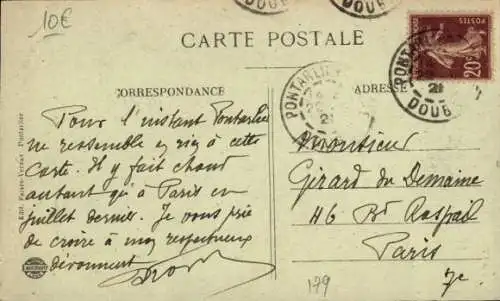 10€
CARTE POSTALE
CORRESPONDANCE
ADRESSE
POSTES
20c
PONTARLIER
21
DOUBS
PONTARLIER
21
Pour l'instant Pontarlier
ne ressemble en rien à cette
carte. Il y fait chaud
autant qu'à Paris en
juillet dernier. Je vous prie
de croire à mon respectueux
dévouement
Monsieur
Girard du Demaine
46 Bd Raspail
Paris
7e
179
Edit. Pontarlier